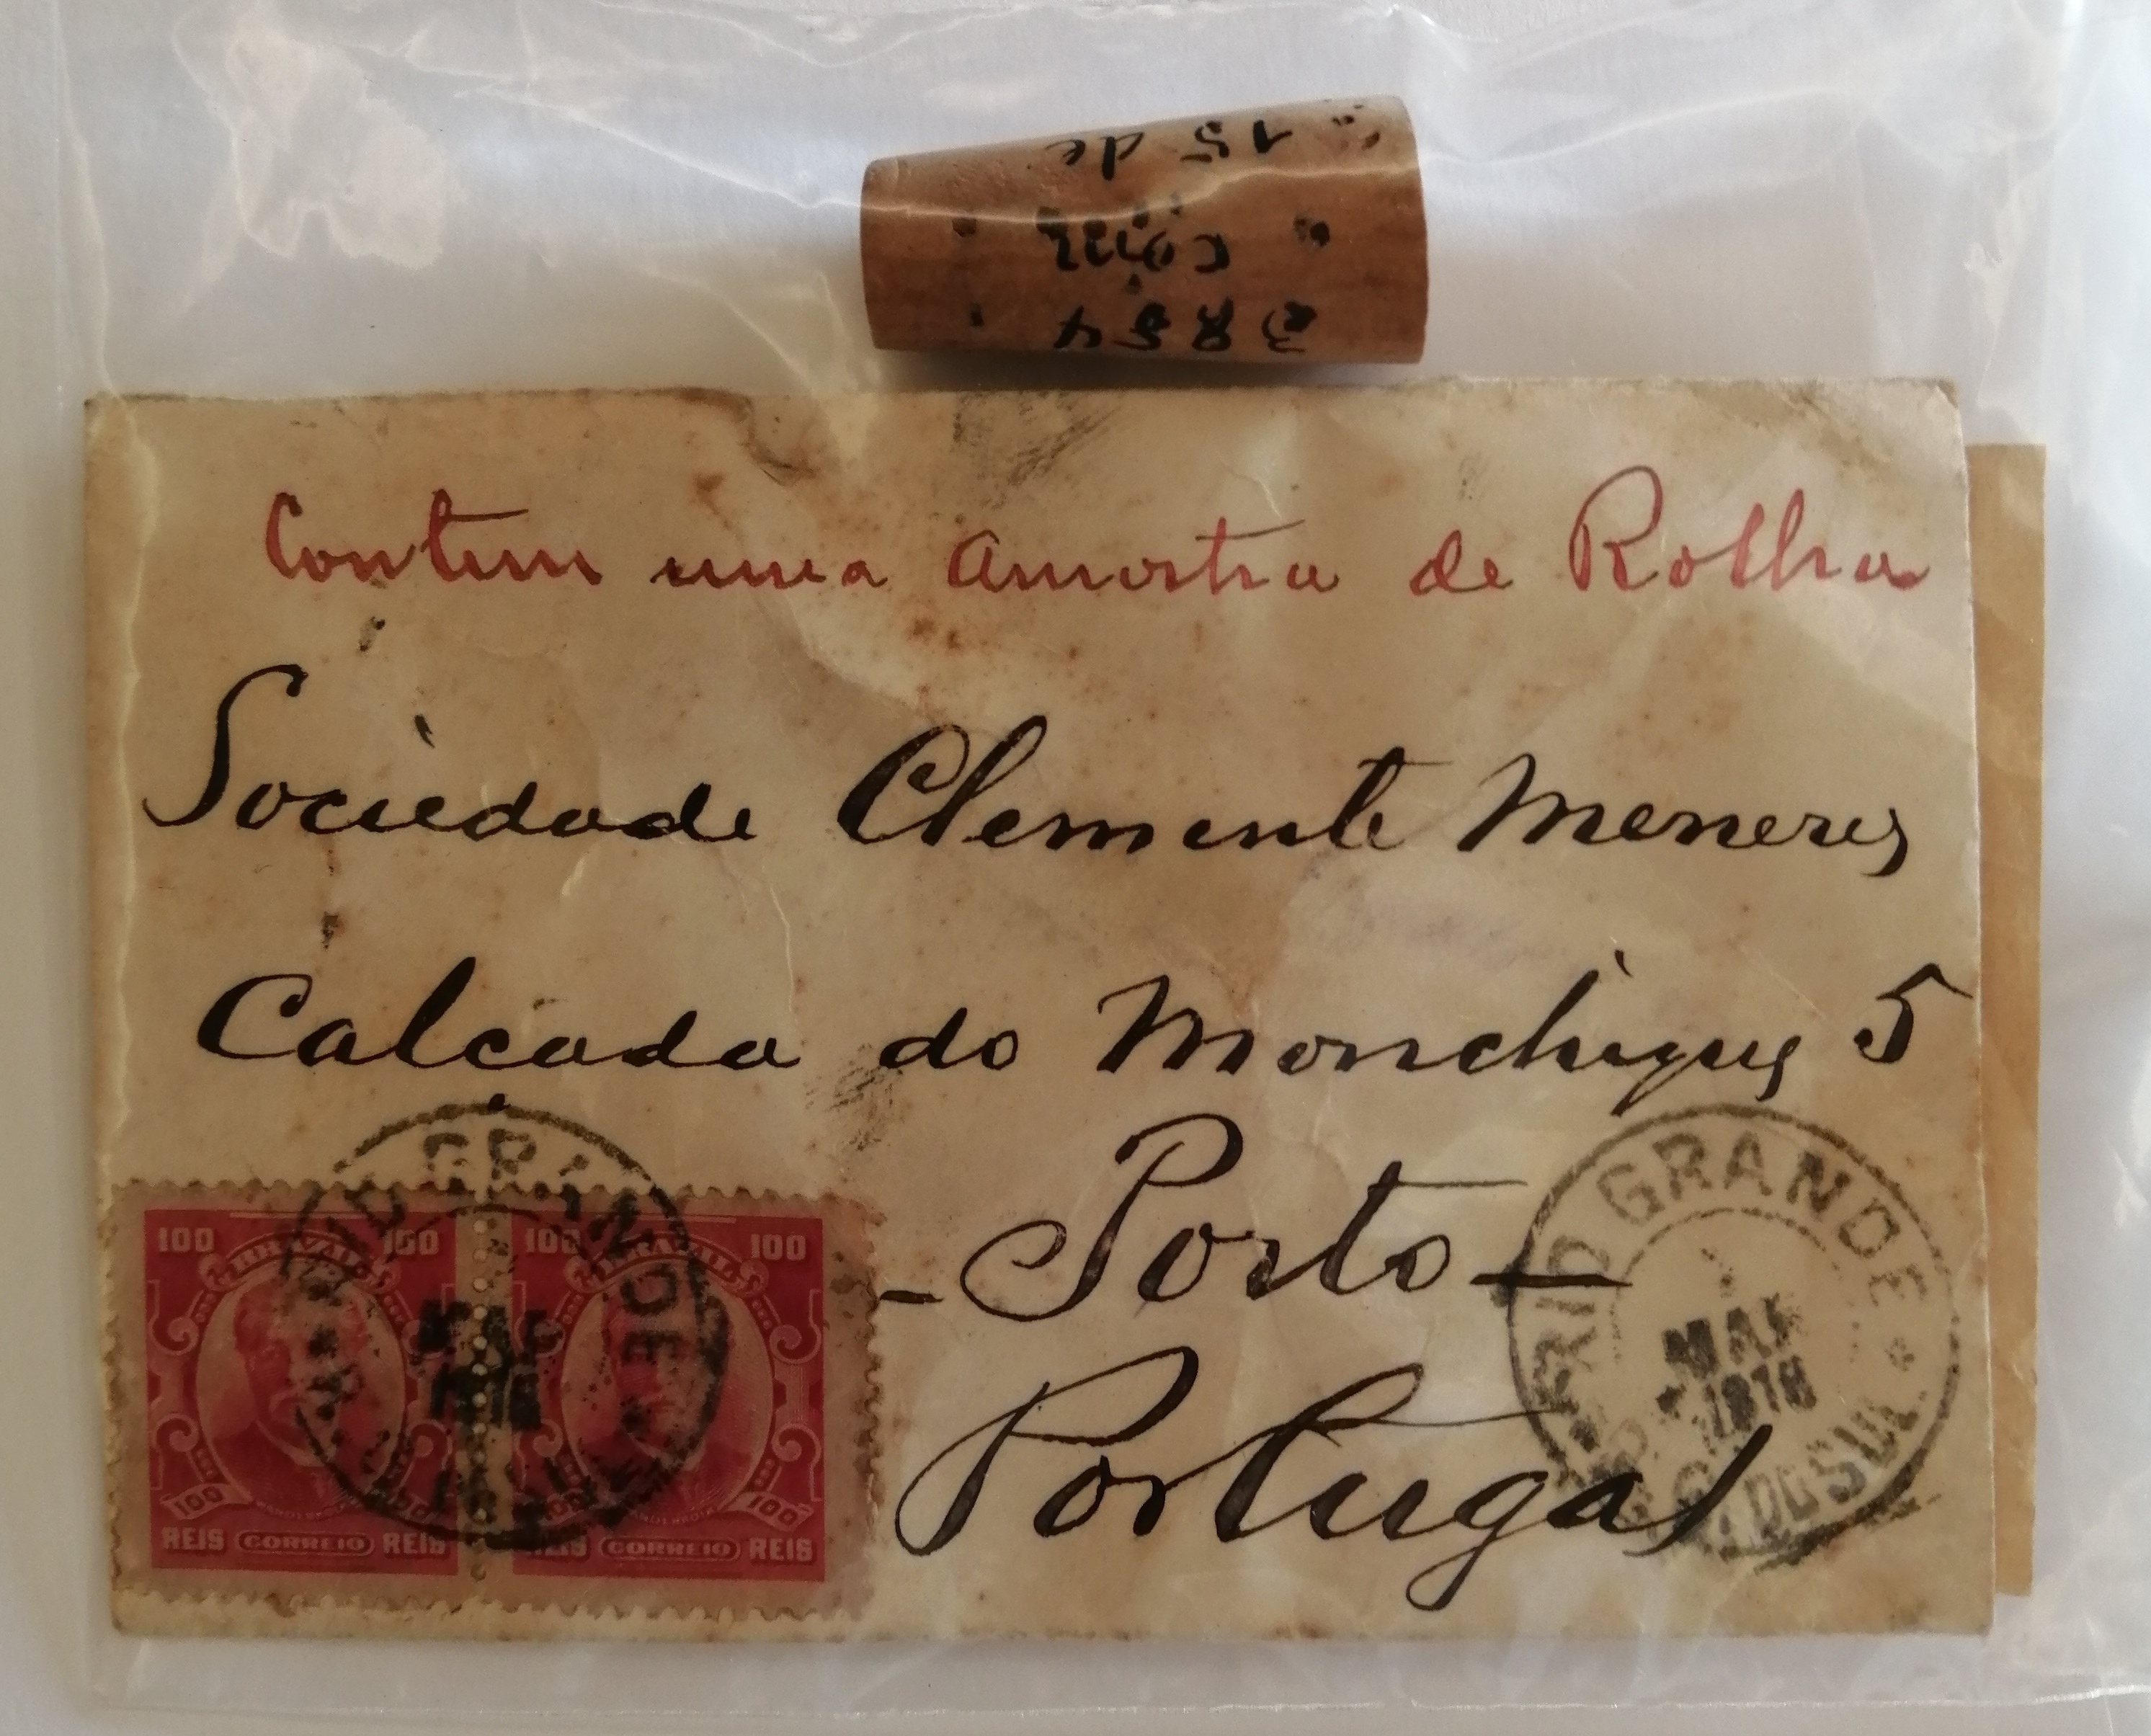 15 de
3854
Contem uma amostra de Rolha
Sociedade Clemente Meneres
Calçada do Monchique 5
- Porto -
Portugal
RIO GRANDE
MAR
RIO GRANDE
MAR
1918
R. G. DO SUL
100 BRAZIL 100
100 100
REIS CORREIO REIS
100 BRAZIL 100
100 100
REIS CORREIO REIS